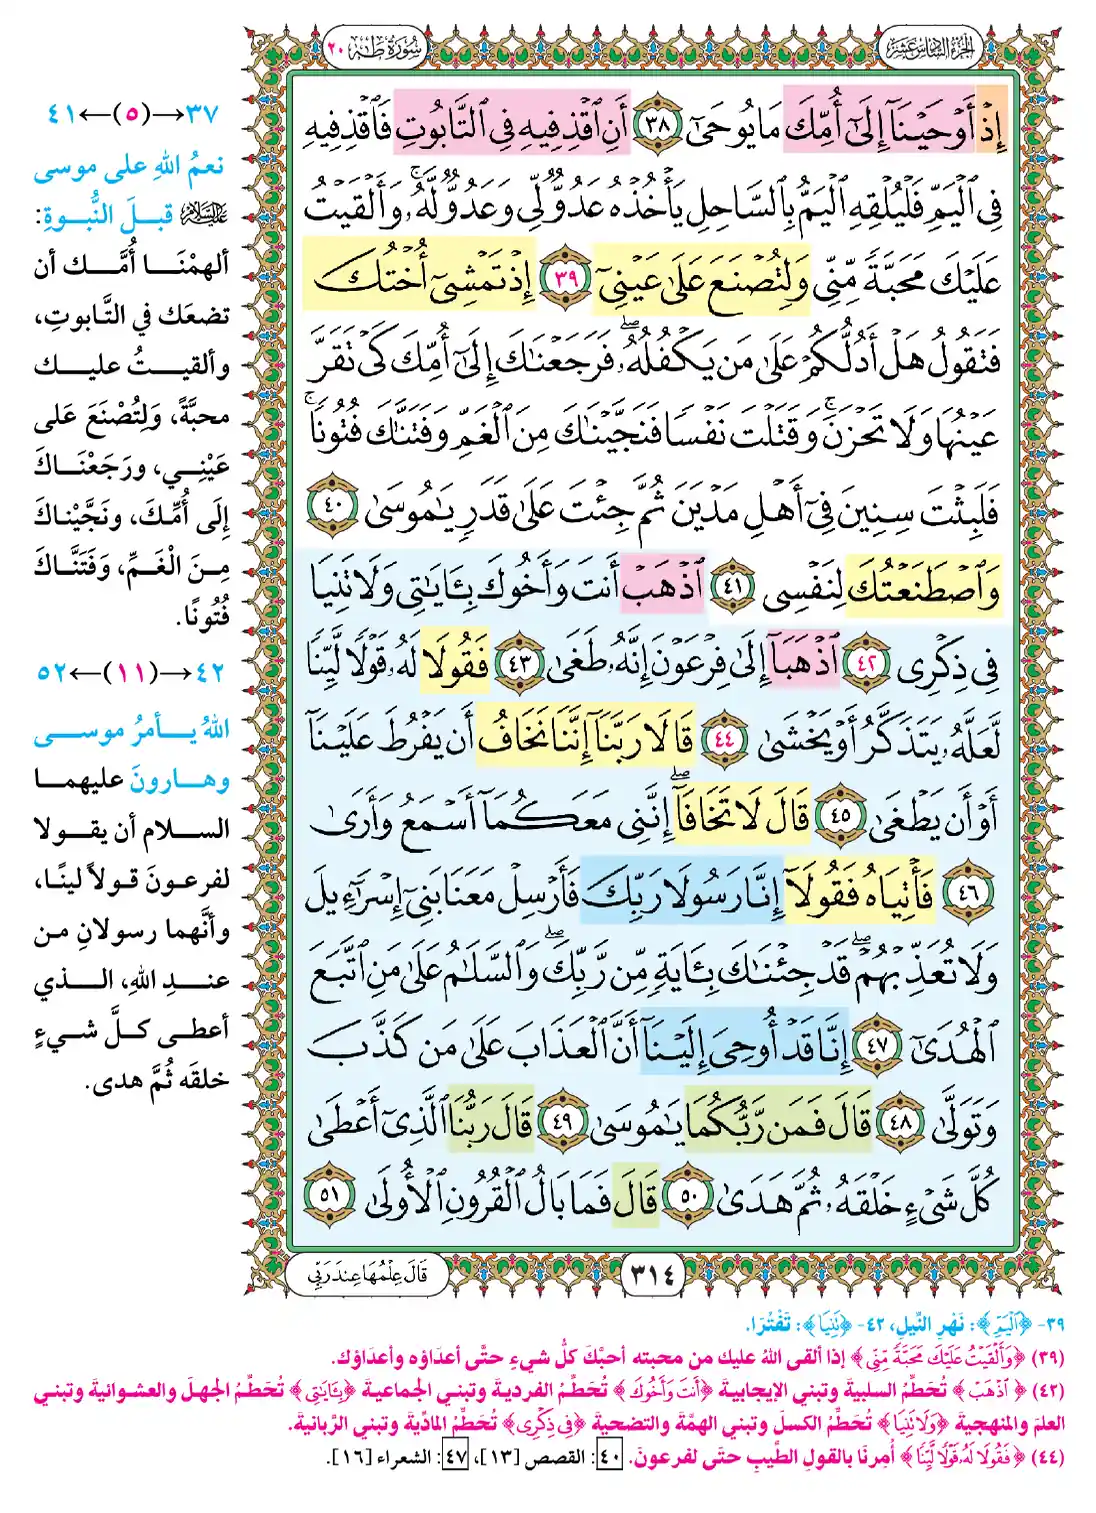 الجزء السادس عشر
سورة طه ٢٠
إِذْ أَوْحَيْنَآ إِلَىٰٓ أُمِّكَ مَا يُوحَىٰٓ ٣٨ أَنِ ٱقْذِفِيهِ فِى ٱلتَّابُوتِ فَٱقْذِفِيهِ
فِى ٱلْيَمِّ فَلْيُلْقِهِ ٱلْيَمُّ بِٱلسَّاحِلِ يَأْخُذْهُ عَدُوٌّ لِّى وَعَدُوٌّ لَّهُۥ ۚ وَأَلْقَيْتُ
عَلَيْكَ مَحَبَّةً مِّنِّى وَلِتُصْنَعَ عَلَىٰ عَيْنِىٓ ٣٩ إِذْ تَمْشِىٓ أُخْتُكَ
فَتَقُولُ هَلْ أَدُلُّكُمْ عَلَىٰ مَن يَكْفُلُهُۥ ۖ فَرَجَعْنَٰكَ إِلَىٰٓ أُمِّكَ كَىْ تَقَرَّ
عَيْنُهَا وَلَا تَحْزَنَ ۚ وَقَتَلْتَ نَفْسًا فَنَجَّيْنَٰكَ مِنَ ٱلْغَمِّ وَفَتَنَّٰكَ فُتُونًا ۚ
فَلَبِثْتَ سِنِينَ فِىٓ أَهْلِ مَدْيَنَ ثُمَّ جِئْتَ عَلَىٰ قَدَرٍ يَٰمُوسَىٰ ٤٠
وَٱصْطَنَعْتُكَ لِنَفْسِى ٤١ ٱذْهَبْ أَنتَ وَأَخُوكَ بِـَٔايَٰتِى وَلَا تَنِيَا
فِى ذِكْرِى ٤٢ ٱذْهَبَآ إِلَىٰ فِرْعَوْنَ إِنَّهُۥ طَغَىٰ ٤٣ فَقُولَا لَهُۥ قَوْلًا لَّيِّنًا
لَّعَلَّهُۥ يَتَذَكَّرُ أَوْ يَخْشَىٰ ٤٤ قَالَا رَبَّنَآ إِنَّنَا نَخَافُ أَن يَفْرُطَ عَلَيْنَآ
أَوْ أَن يَطْغَىٰ ٤٥ قَالَ لَا تَخَافَآ ۖ إِنَّنِى مَعَكُمَآ أَسْمَعُ وَأَرَىٰ
٤٦ فَأْتِيَاهُ فَقُولَآ إِنَّا رَسُولَا رَبِّكَ فَأَرْسِلْ مَعَنَا بَنِىٓ إِسْرَٰٓءِيلَ
وَلَا تُعَذِّبْهُمْ ۖ قَدْ جِئْنَٰكَ بِـَٔايَةٍ مِّن رَّبِّكَ ۖ وَٱلسَّلَٰمُ عَلَىٰ مَنِ ٱتَّبَعَ
ٱلْهُدَىٰٓ ٤٧ إِنَّا قَدْ أُوحِىَ إِلَيْنَآ أَنَّ ٱلْعَذَابَ عَلَىٰ مَن كَذَّبَ
وَتَوَلَّىٰ ٤٨ قَالَ فَمَن رَّبُّكُمَا يَٰمُوسَىٰ ٤٩ قَالَ رَبُّنَا ٱلَّذِىٓ أَعْطَىٰ
كُلَّ شَىْءٍ خَلْقَهُۥ ثُمَّ هَدَىٰ ٥٠ قَالَ فَمَا بَالُ ٱلْقُرُونِ ٱلْأُولَىٰ ٥١
٣١٤
قَالَ عِلْمُهَا عِندَ رَبِّى
٣٧→(٥)←٤١
نعمُ اللهِ على موسى
عليه السلام قبلَ النُّبوةِ:
ألهمْنَا أُمَّك أن
تضعَك في التَّابوتِ،
وألقيتُ عليك
محبَّةً، وَلِتُصْنَعَ عَلى
عَيْنِي، ورَجَعْنَاكَ
إِلَى أُمِّكَ، ونَجَّيْناكَ
مِنَ الْغَمِّ، وَفَتَنَّاكَ
فُتُونًا.
٤٢→(١١)←٥٢
اللهُ يأمرُ موسى
وهارونَ عليهما
السلام أن يقولا
لفرعونَ قولاً لينًا،
وأنَّهما رسولانِ من
عندِ اللهِ، الذي
أعطى كلَّ شيءٍ
خلقَه ثُمَّ هدى.
٣٩- ﴿ٱلْيَمِّ﴾: نَهْرِ النِّيلِ، ٤٢- ﴿تَنِيَا﴾: تَفْتُرَا.
(٣٩) ﴿وَأَلْقَيْتُ عَلَيْكَ مَحَبَّةً مِّنِّى﴾ إذا ألقى اللهُ عليك من محبته أحبَّكَ كلُّ شيءٍ حتَّى أعداؤه وأعداؤك.
(٤٢) ﴿ٱذْهَبْ﴾ تُحَطِّمُ السلبيةَ وتبني الإيجابيةَ ﴿أَنتَ وَأَخُوكَ﴾ تُحَطِّمُ الفرديةَ وتبني الجماعيةَ ﴿بِـَٔايَٰتِى﴾ تُحَطِّمُ الجهلَ والعشوائيةَ وتبني
العلمَ والمنهجيةَ ﴿وَلَا تَنِيَا﴾ تُحَطِّمُ الكسلَ وتبني الهمَّةَ والتضحيةَ ﴿فِى ذِكْرِى﴾ تُحَطِّمُ المادِّيةَ وتبني الرَّبانيةَ.
(٤٤) ﴿فَقُولَا لَهُۥ قَوْلًا لَّيِّنًا﴾ أُمِرنَا بالقولِ الطَّيبِ حتَى لفرعونَ. ٤٠: القصص [١٣]، ٤٧: الشعراء [١٦].